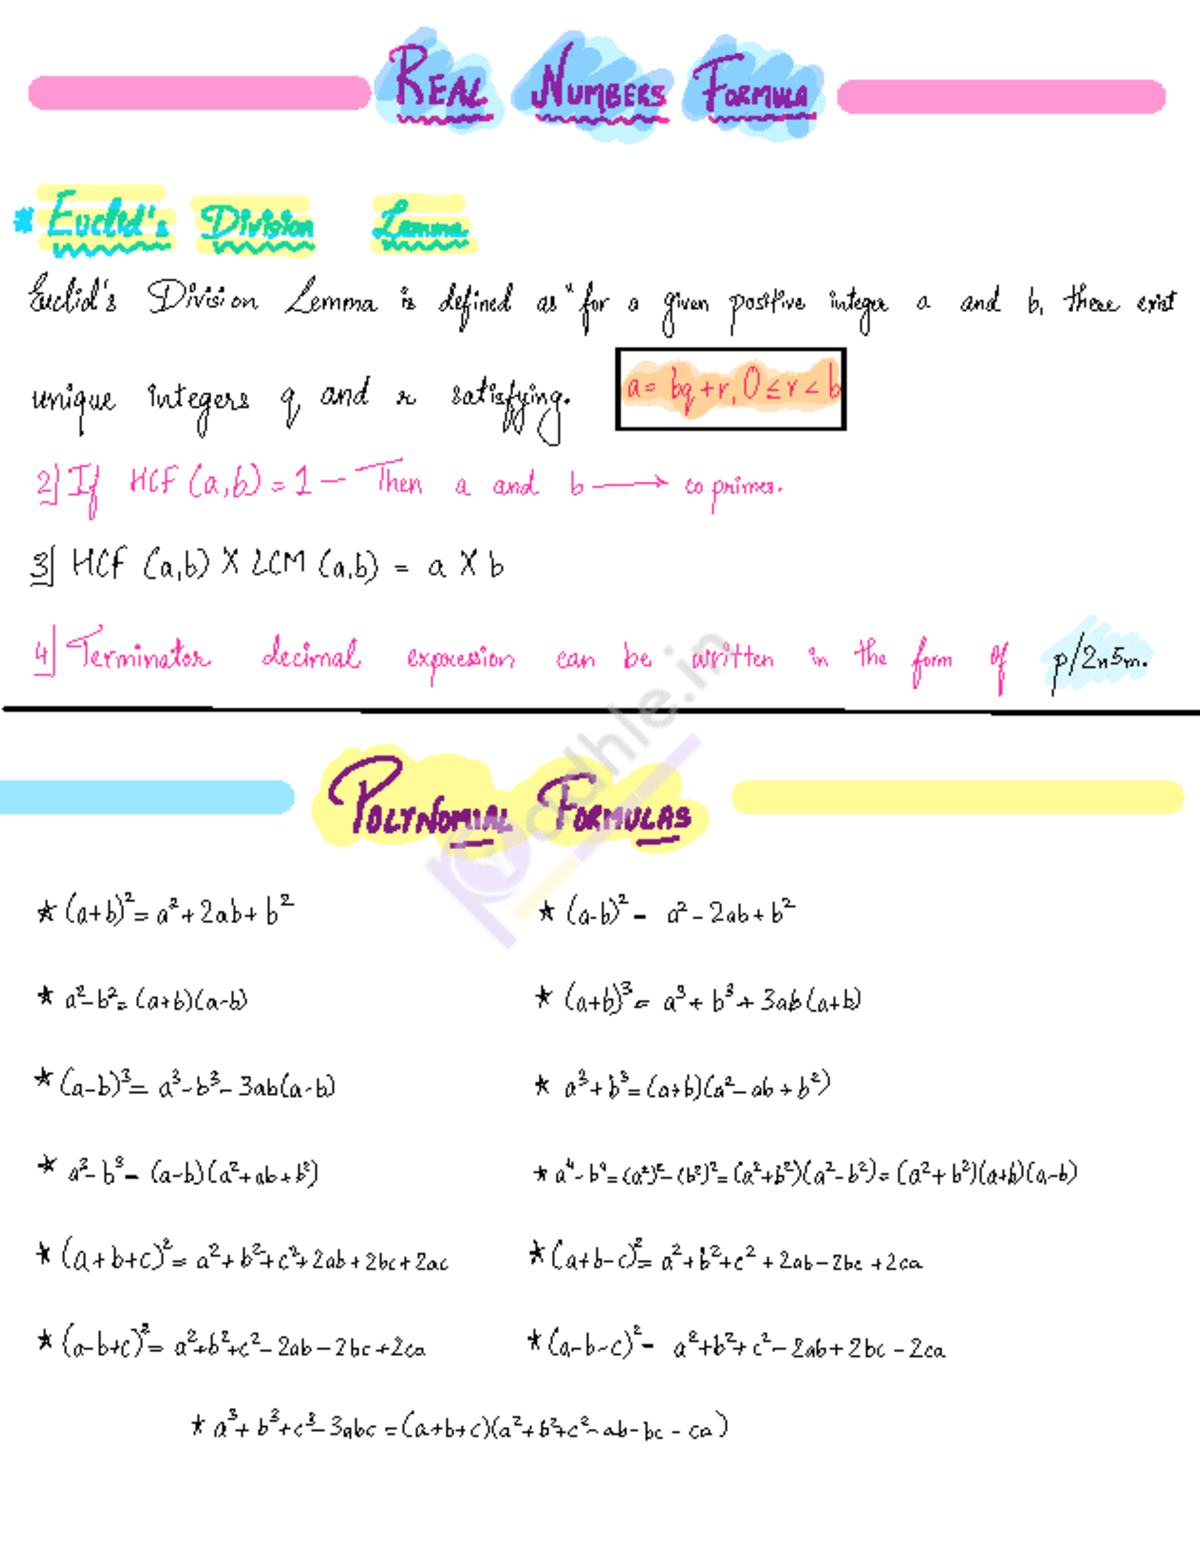 REAL NUMBERS FORMULA
* Euclid's Division Lemma
Euclid's Division Lemma is defined as "for a given positive integer a and b, there exist
unique integers q and r satisfying. a = bq + r, 0 ≤ r < b
2] If HCF (a,b) = 1 — Then a and b → co primes.
3] HCF (a,b) X LCM (a,b) = a X b
4] Terminator decimal expression can be written in the form of p/2n5m.
POLYNOMIAL FORMULAS
★ (a+b)² = a² + 2ab + b² ★ (a-b)² - a² - 2ab + b²
★ a² - b² = (a+b)(a-b) ★ (a+b)³ = a³ + b³ + 3ab(a+b)
★ (a-b)³ = a³ - b³ - 3ab(a-b) ★ a³ + b³ = (a+b)(a² - ab + b²)
★ a³ - b³ - (a-b)(a² + ab + b²) ★ a⁴ - b⁴ = (a²)² - (b²)² = (a² + b²)(a² - b²) = (a² + b²)(a+b)(a-b)
★ (a+b+c)² = a² + b² + c² + 2ab + 2bc + 2ac ★ (a+b-c)² = a² + b² + c² + 2ab - 2bc + 2ca
★ (a-b+c)² = a² + b² + c² - 2ab - 2bc + 2ca ★ (a-b-c)² - a² + b² + c² - 2ab + 2bc - 2ca
★ a³ + b³ + c³ - 3abc = (a+b+c)(a² + b² + c² - ab - bc - ca)